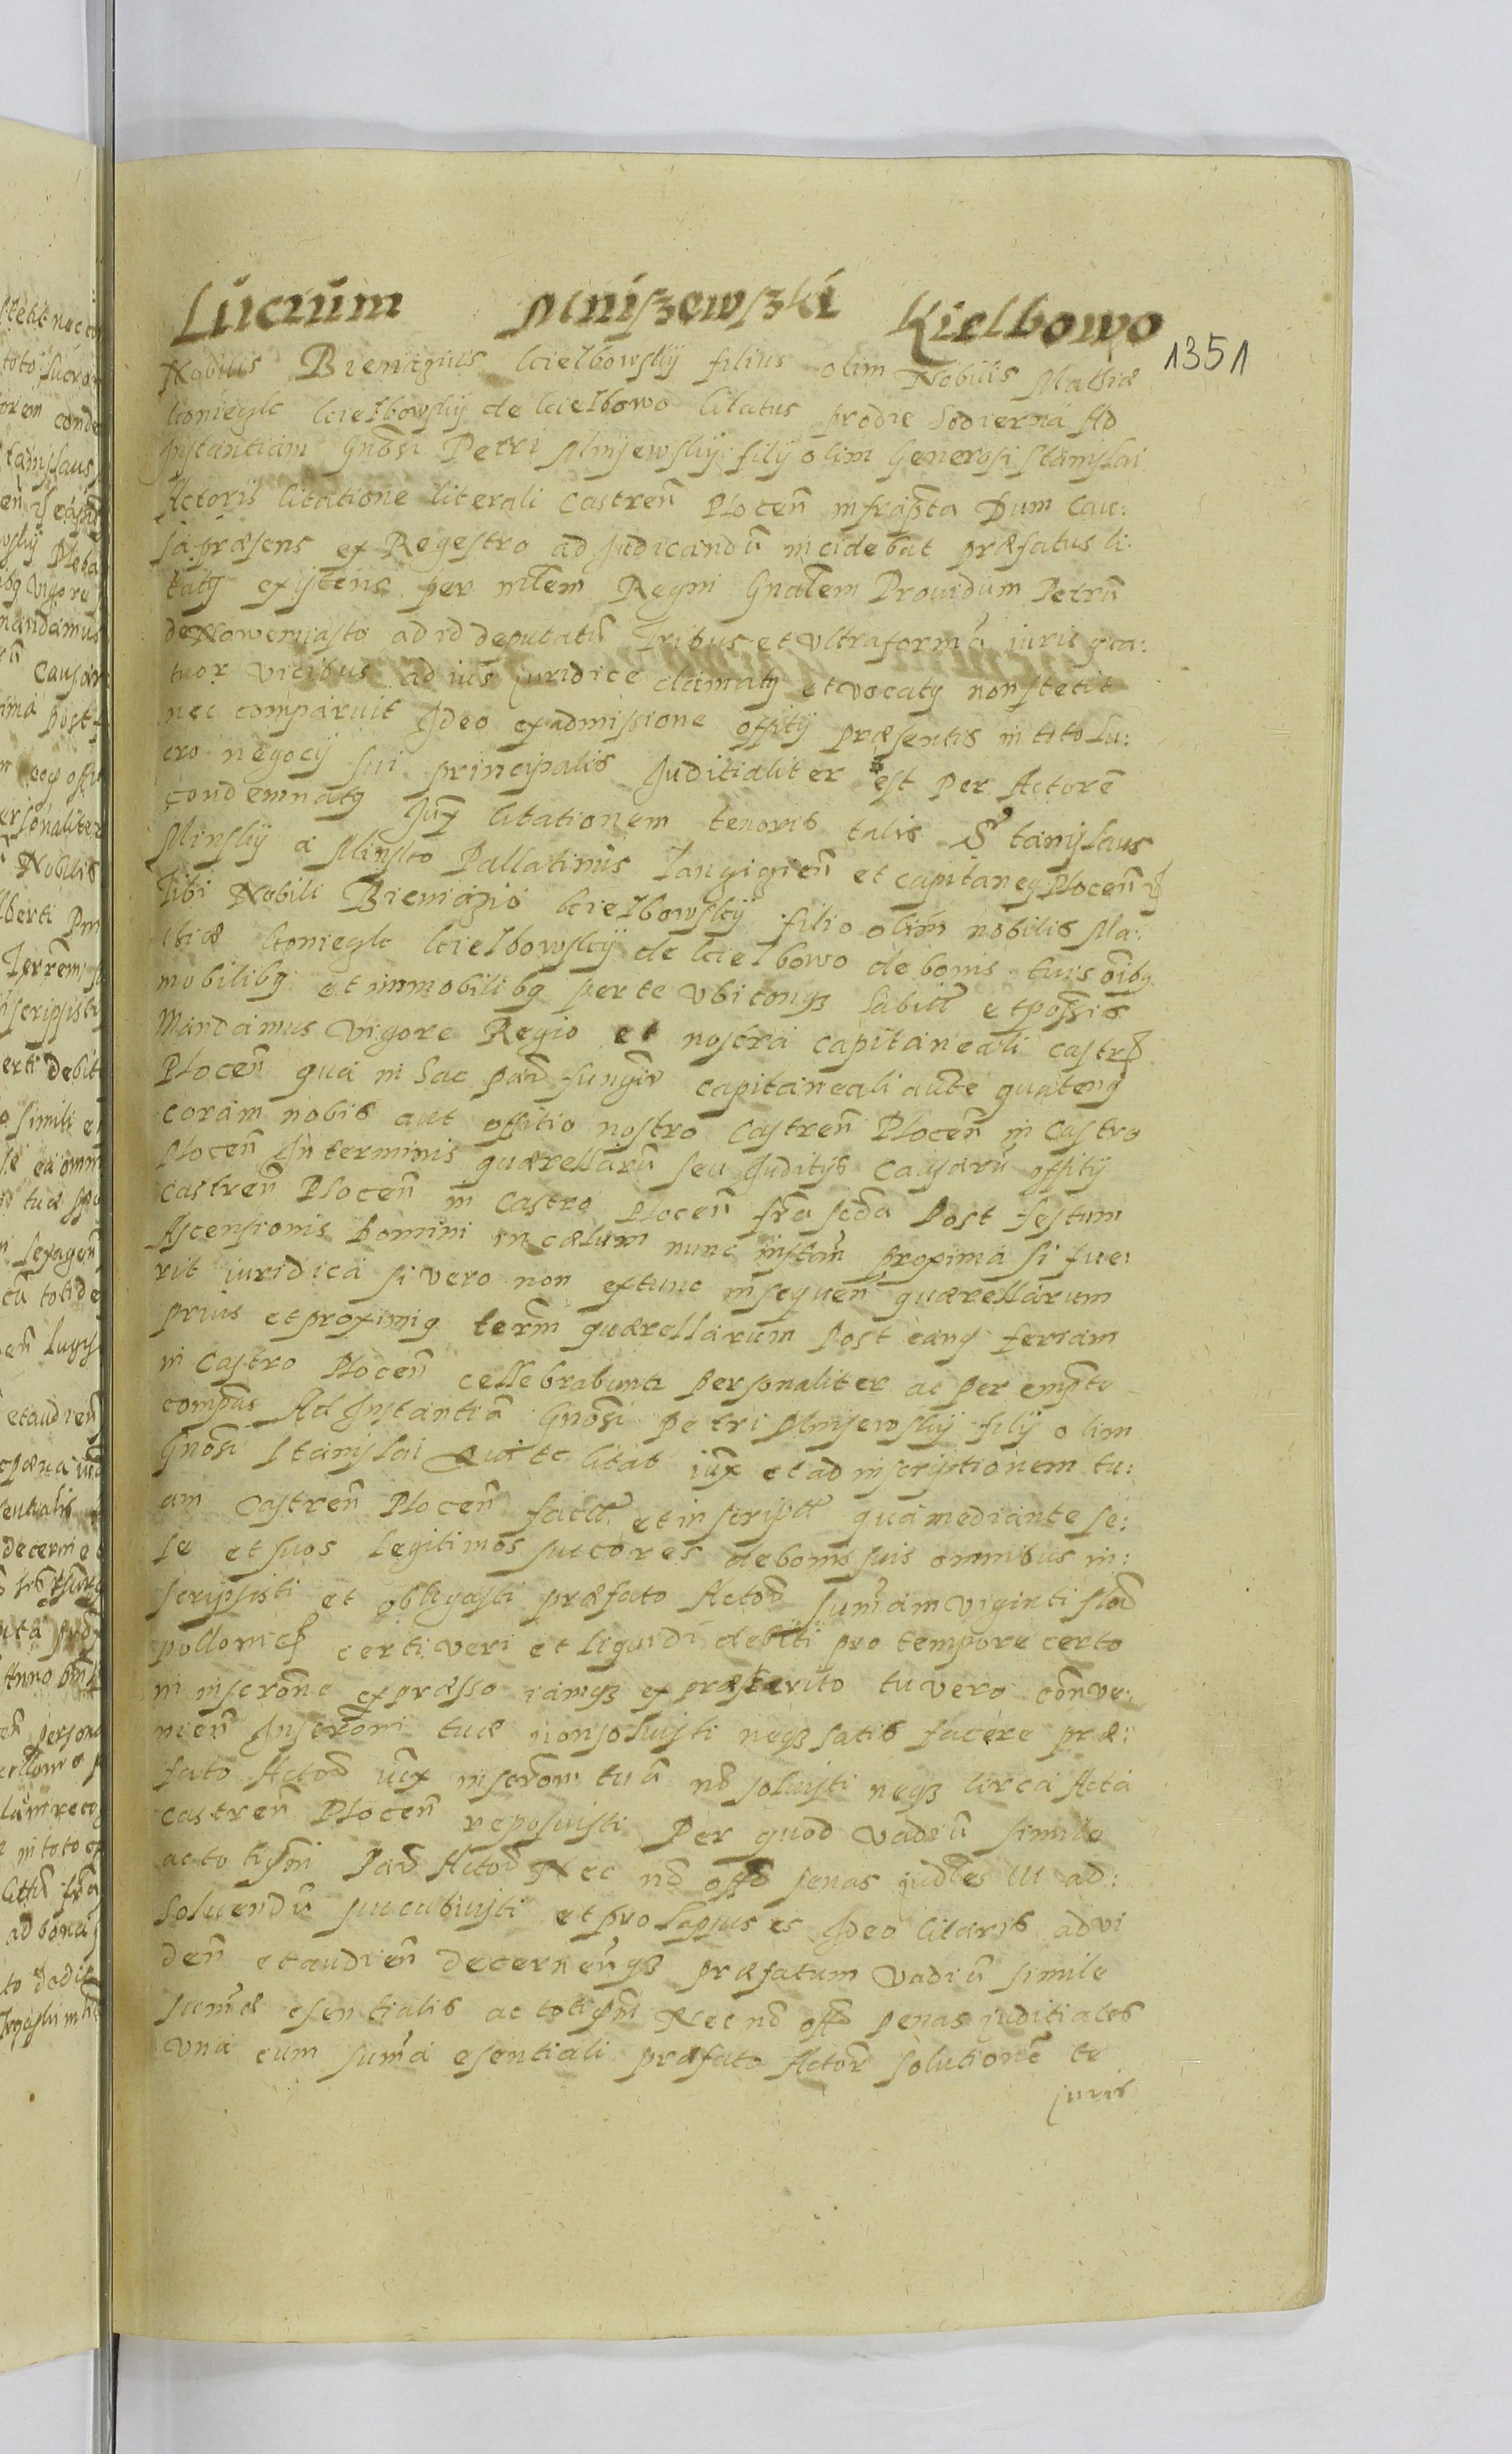 Lucrum Mniszewski Kielbowo
1351
Nobilis Bieniasius Kielbowskij filius olim Nobilis Mathiæ
Konieglc Kielbowskij de Kielbowo Citatus prodie hodierna Ad
Instantiam Gnõsi Petri Mnijewskij filij olim Generosi Stanislai
Actoris Citatione literali Castreñ Ploceñ infrapta Dum Cau:
sa præsens ex Regestro ad Judicandũ incidebat præfatus Ci:
tatq existens per mlem Regni Gnalem Prouidum Petrũ
de Nowemiasto ad id deputatũ Tribus et vltra formã iuris qua:
tuor vicibus ad ius juridice clamatq et vocatq non stetit
nec comparuit Ideo ex admissione offitij præsentis in toto Lu:
cro negocij sui principalis Juditialiter est per Actorẽ
condemnatq Jux Citationem tenoris talis Stanislaus
Minskij a Minsko Pallatinus Langigieñ et capitaneq Ploceñ
Tibi Nobili Bieniasio Kielbowskij filio olim nobilis Ma:
thiæ Konieglc Kielbowskij de Kielbowo de bonis tuis oibq
mobilibq et immobilibq per te vbiconqз habitt et possis
Mandamus Vigore Regio et nostra capitaneali castr
Ploceñ qua in hac par fungimr capitaneali aute quatenq
coram nobis aut offitio nostro Castreñ Ploceñ in Castro
Ploceñ In terminis quærellarũ seu Juditijs Causarũ offitij
castreñ Ploceñ in Castro Ploceñ fra scda Post festum
Ascensionis Domini in cælum nunc instañ proxima si fue:
rit iuridica si vero non extunc insequeñ quærellarum
prius et proximiq term quærellarum post eang feriam
in Castro Ploceñ cellebrabunt personaliter ac per empte
compas Ad Instantiã Gnõsi Petri Mnijewskij filij olim
Gnõsi Stanislai Qui te Citat iux et ad inscriptionem tu:
am Castreñ Ploceñ factt et inscriptt qua mediante se:
se et suos Legitimos succores de bonis suis omnibus in:
scripsisti et obligasti præfato Actor sum̃am viginti flor
pollonic certi veri et liquidi debiti pro tempore certo
in inscrone expræsso iamqз ex præterito tu vero conve:
nieñ Inscroni tuæ non soluisti neqз satis facere præ:
fato Actor iux inscrom tuã nõ soluisti neqз circa Acta
castreñ Ploceñ reposuisti Per quod vadiũ simile
ac totism par Actor Nec nõ offo penas judles III ad:
soluendũ succubuisti et pro lapsus es Ideo Citaris ad vi
deñ et audieñ decerneñqз præfatum vadiũ simile
sum̃æ esentialis ac totism Nec nõ offo penas juditiales
vna cum sum̃a esentiali præfato Actor solutionẽ te
juris